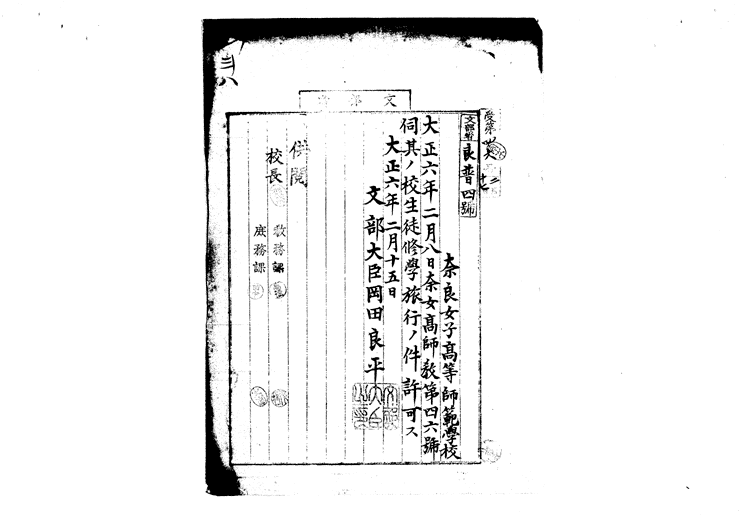 文部省
受第四六
文部省
良普四號
奈良女子高等師範學校
大正六年二月八日奈女高師敎第四六號
伺其ノ校生徒修學旅行ノ件許可ス
大正六年二月十五日
文部大臣岡田良平
供閲
校長
敎務課
庶務課